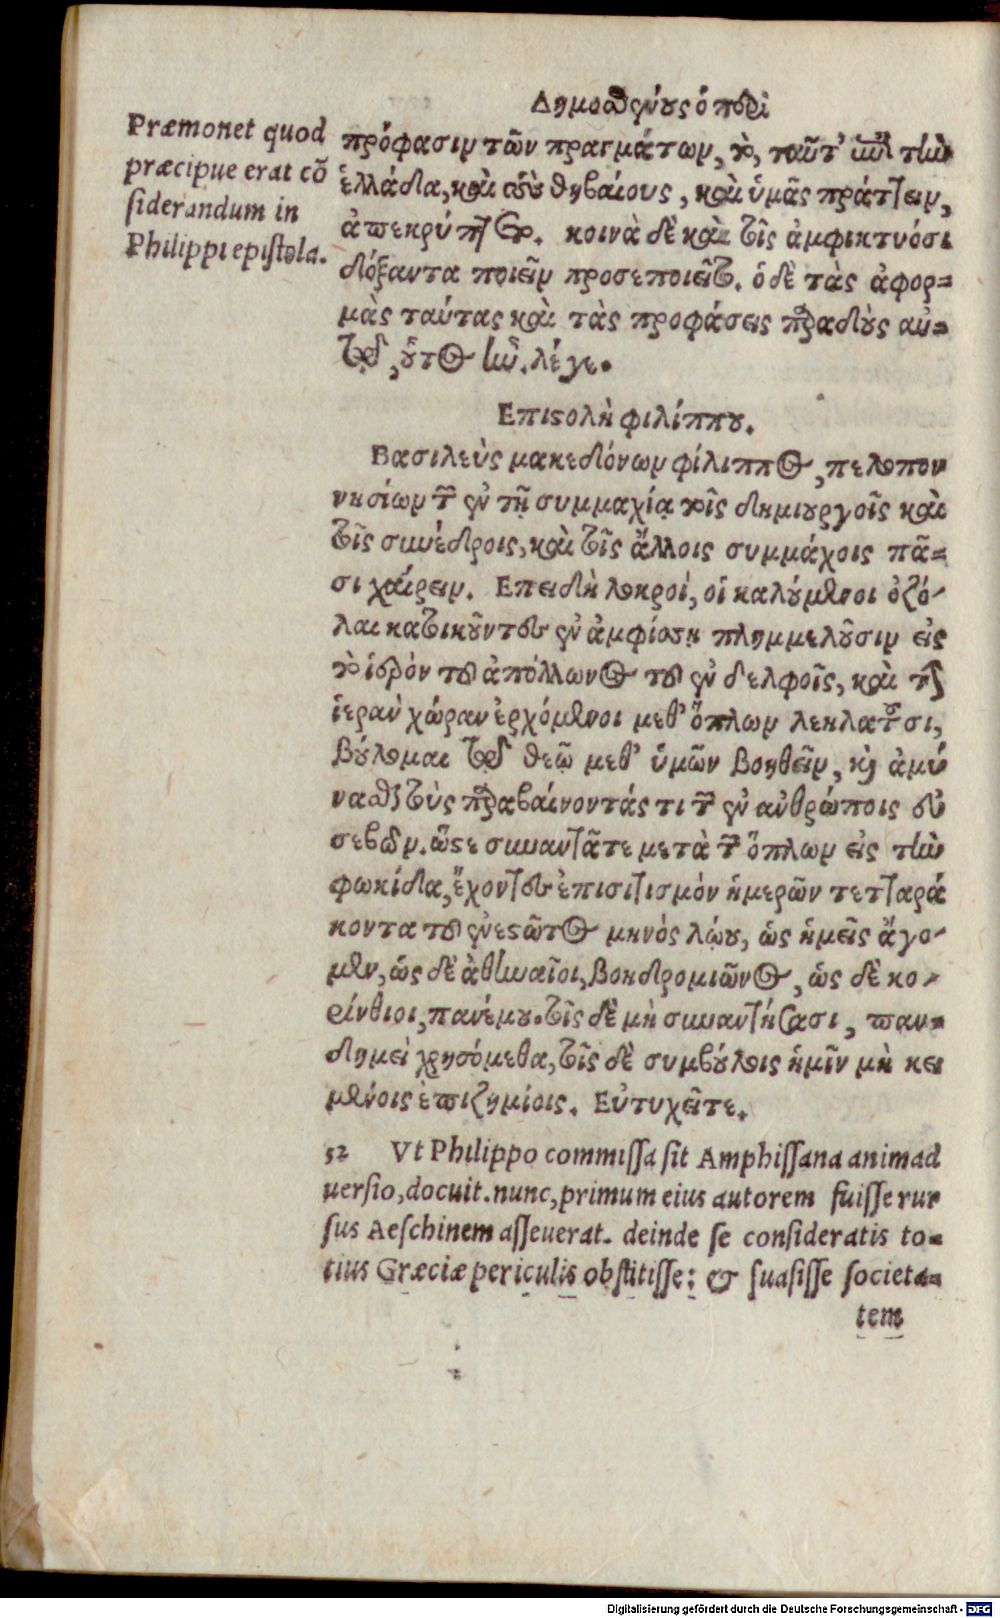 Δημοσθένους ὁ περὶ
Præmonet quod
præcipue erat cõ
siderandum in
Philippi epistola.
πρόφασιν τῶν πραγμάτων, τὸ, ταῦτ' ἐπὶ τὴν
ἑλλάδα, καὶ τοὺς θηβαίους, καὶ ὑμᾶς πράττειν,
ἀπεκρύπτετο. κοινὰ δὲ καὶ τοῖς ἀμφικτυόσι
δόξαντα ποιεῖν προσεποιεῖτο. ὁ δὲ τὰς ἀφορ=
μὰς ταύτας καὶ τὰς προφάσεις παραδοὺς αὐ=
τῷ, οὗτος ἦν. λέγε.
Επιστολὴ φιλίππου.
Βασιλεὺς μακεδόνων φίλιππος, πελοπον
νησίων τῶν ἐν τῇ συμμαχίᾳ τοῖς δημιουργοῖς καὶ
τοῖς συνέδροις, καὶ τοῖς ἄλλοις συμμάχοις πᾶ=
σι χαίρειν. Επειδὴ λοκροί, οἱ καλούμενοι ὀζό-
λαι κατοικοῦντες ἐν ἀμφίσσῃ πλημμελοῦσιν εἰς
τὸ ἱερὸν τοῦ ἀπόλλωνος τοῦ ἐν δελφοῖς, καὶ τὴν
ἱερὰν χώραν ἐρχόμενοι μεθ' ὅπλων λεηλατοῦσι,
βούλομαι τῷ θεῷ μεθ' ὑμῶν βοηθεῖν, καὶ ἀμύ
νασθαι τοὺς παραβαίνοντάς τι τῶν ἐν ἀνθρώποις εὐ
σεβῶν. ὥστε συναντᾶτε μετὰ τῶν ὅπλων εἰς τὴν
φωκίδα, ἔχοντες ἐπισιτισμὸν ἡμερῶν τετταρά
κοντα τοῦ ἐνεστῶτος μηνὸς λῴου, ὡς ἡμεῖς ἄγο-
μεν, ὡς δὲ ἀθηναῖοι, βοηδρομιῶνος, ὡς δὲ κο-
ρίνθιοι, πανέμου. τοῖς δὲ μὴ συναντήσασι, παν=
δημεὶ χρησόμεθα, τοῖς δὲ συμβούλοις ἡμῖν μὴ κει
μένοις ἐπιζημίοις. Εὐτυχεῖτε.
52 Vt Philippo commissa sit Amphissana animad
uersio, docuit. nunc, primum eius autorem fuisse rur
sus Aeschinem asseuerat. deinde se consideratis to=
tius Græciæ periculis obstitisse: & suasisse societa=
tem
Digitalisierung gefördert durch die Deutsche Forschungsgemeinschaft - DFG